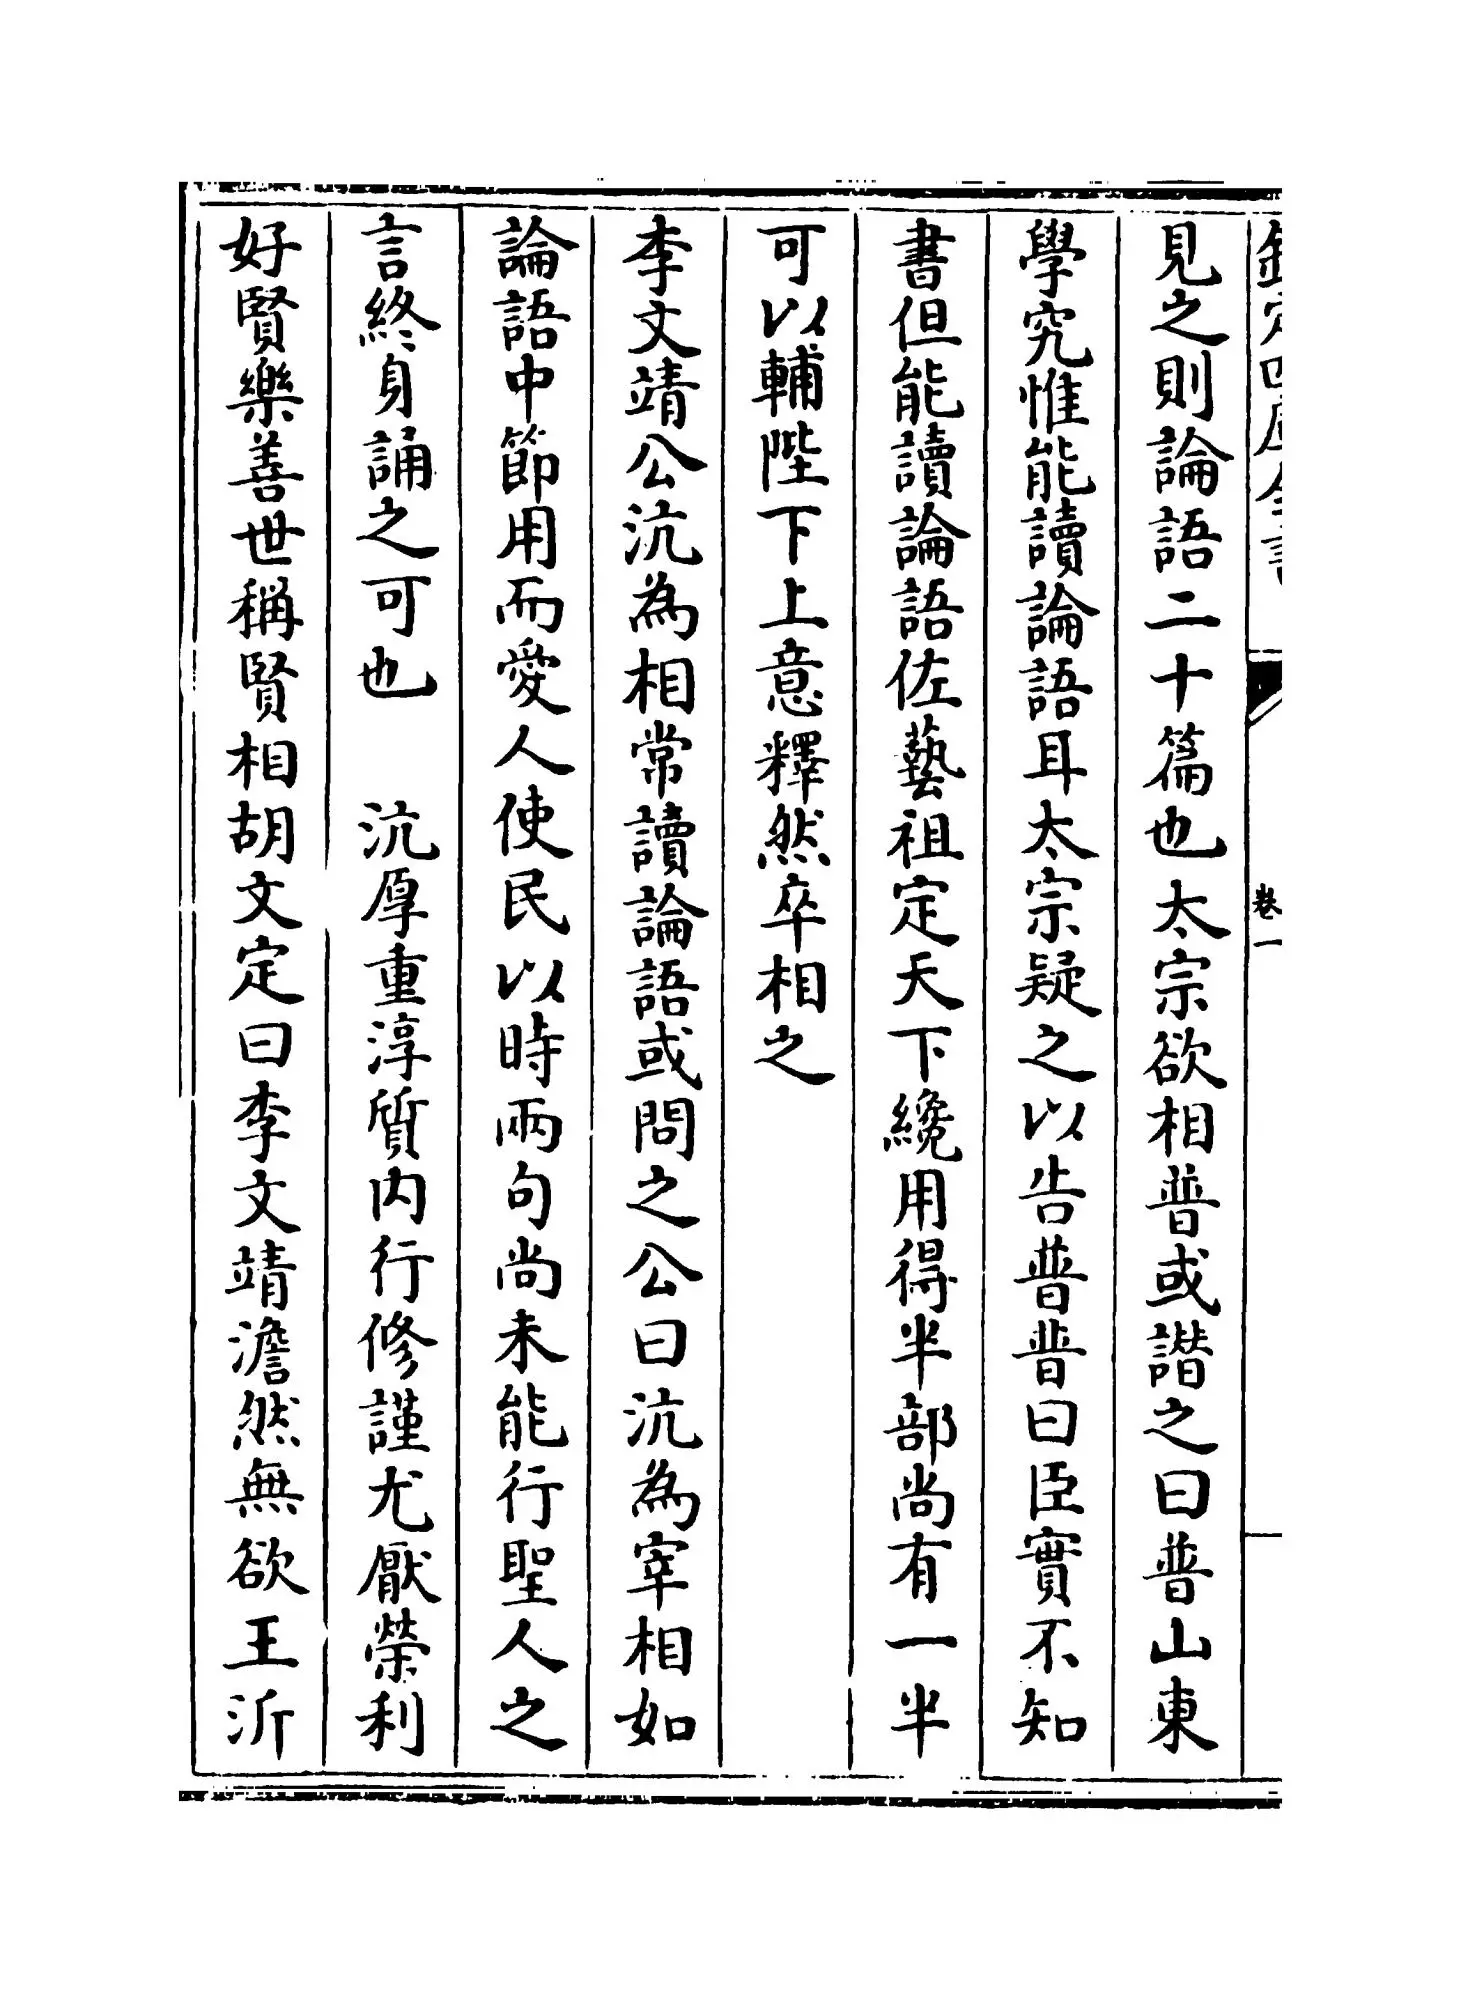 欽定四庫全書 卷一
見之則論語二十篇也太宗欲相普或譖之曰普山東
學究惟能讀論語耳太宗疑之以告普普曰臣實不知
書但能讀論語佐藝祖定天下纔用得半部尚有一半
可以輔陛下上意釋然卒相之
李文靖公沆為相常讀論語或問之公曰沆為宰相如
論語中節用而愛人使民以時兩句尚未能行聖人之
言終身誦之可也 沆厚重淳質内行修謹尤厭榮利
好賢樂善世稱賢相胡文定曰李文靖澹然無欲王沂